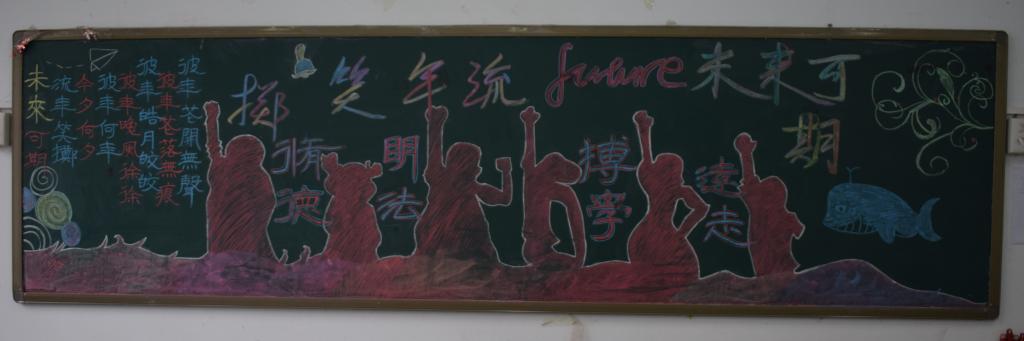 擲笑年流 future 未来可期
脩德
明法
博學
遠走
彼年花開無聲
彼年花落無痕
彼年皓月皎皎
彼年晚風徐徐
彼年何年
今夕何夕
流年笑擲
未來可期